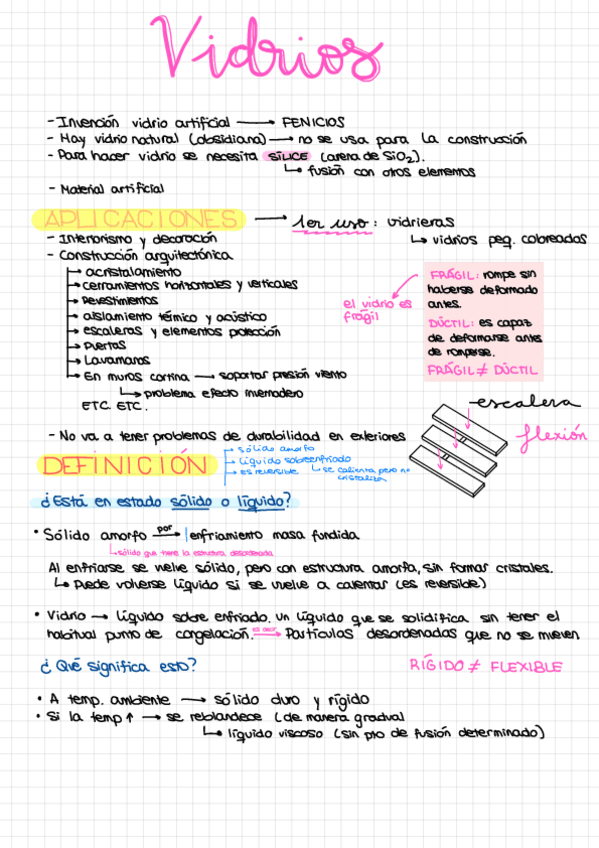 Vidrios
- Invención vidrio artificial → FENICIOS
- Hay vidrio natural (obsidiana) → no se usa para la construcción
- Para hacer vidrio se necesita SÍLICE (arena de SiO₂).
↳ fusión con otros elementos
- Material artificial
APLICACIONES → 1er uso: vidrieras
- Interiorismo y decoración
↳ vidrios peq. coloreados
- Construcción arquitectónica
→ acristalamiento
→ cerramientos horizontales y verticales
→ Revestimientos
→ aislamiento térmico y acústico
→ escaleras y elementos protección
→ Puertas
→ Lavamanos
→ En muros cortina → soportar presión viento
↳ problema efecto invernadero
ETC. ETC.
el vidrio es
frágil
FRÁGIL: rompe sin
haberse deformado
antes.
DÚCTIL: es capaz
de deformarse antes
de romperse.
FRÁGIL ≠ DÚCTIL
escalera
flexión
- No va a tener problemas de durabilidad en exteriores
DEFINICIÓN
→ sólido amorfo
→ líquido sobreenfriado
→ es reversible ↳ se calienta pero no
cristaliza
¿Está en estado sólido o líquido?
• Sólido amorfo por→ enfriamiento masa fundida
↳ sólido que tiene la estructura desordenada
Al enfriarse se vuelve sólido, pero con estructura amorfa, sin formar cristales.
↳ Puede volverse líquido si se vuelve a calentar (es reversible)
• Vidrio → Líquido sobre enfriado. Un líquido que se solidifica sin tener el
habitual punto de congelación. es decir⇒ Partículas desordenadas que no se mueven
¿Qué significa esto?
RÍGIDO ≠ FLEXIBLE
• A temp. ambiente → sólido duro y rígido
• Si la temp ↑ → se reblandece (de manera gradual
↳ líquido viscoso (sin pto de fusión determinado)